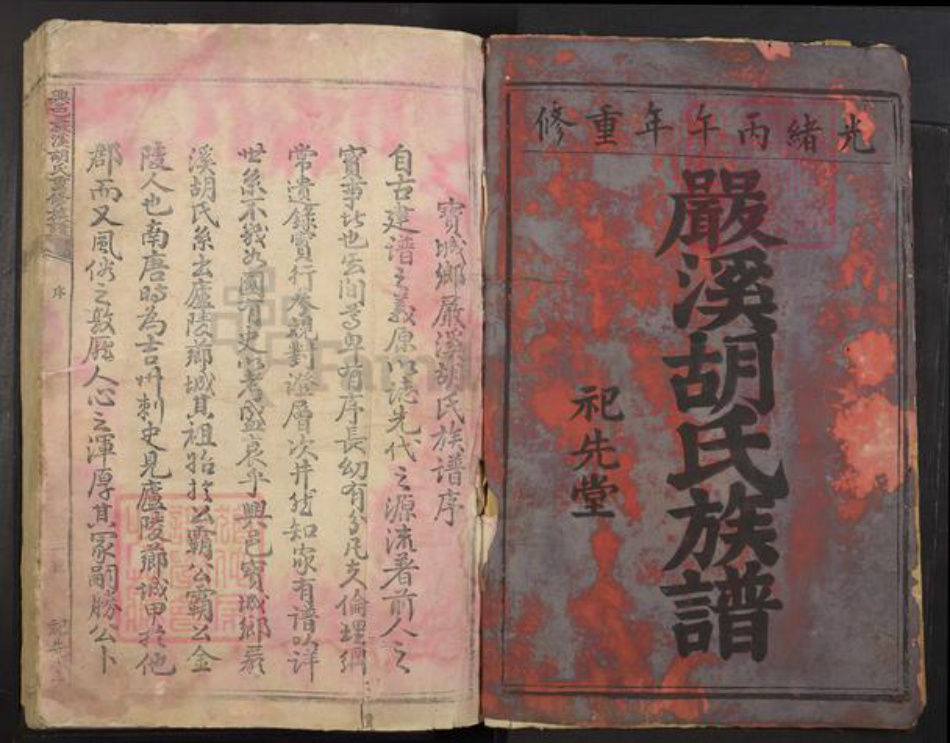 光緒丙午年重修
嚴溪胡氏族譜
祀先堂
寳城鄉嚴溪胡氏族譜序
自古建譜之義原以誌先代之源流着前人之
寳事
尊卑有序長幻有分凢夫倫堙綱
常遺錄實行叅観對證層次井然知家有譜以詳
世系不幾如國有史以考盛衰乎興邑寳城鄉嚴
溪胡氏系出廬陵薌城其祖始於公霸公霸公金
陵人也南唐時為吉州刺史見廬陵薌城甲於他
郡而又風俗之敦龎人心之渾厚其冡嗣勝公卜
興邑嚴溪胡氏重修族譜
序
祀先